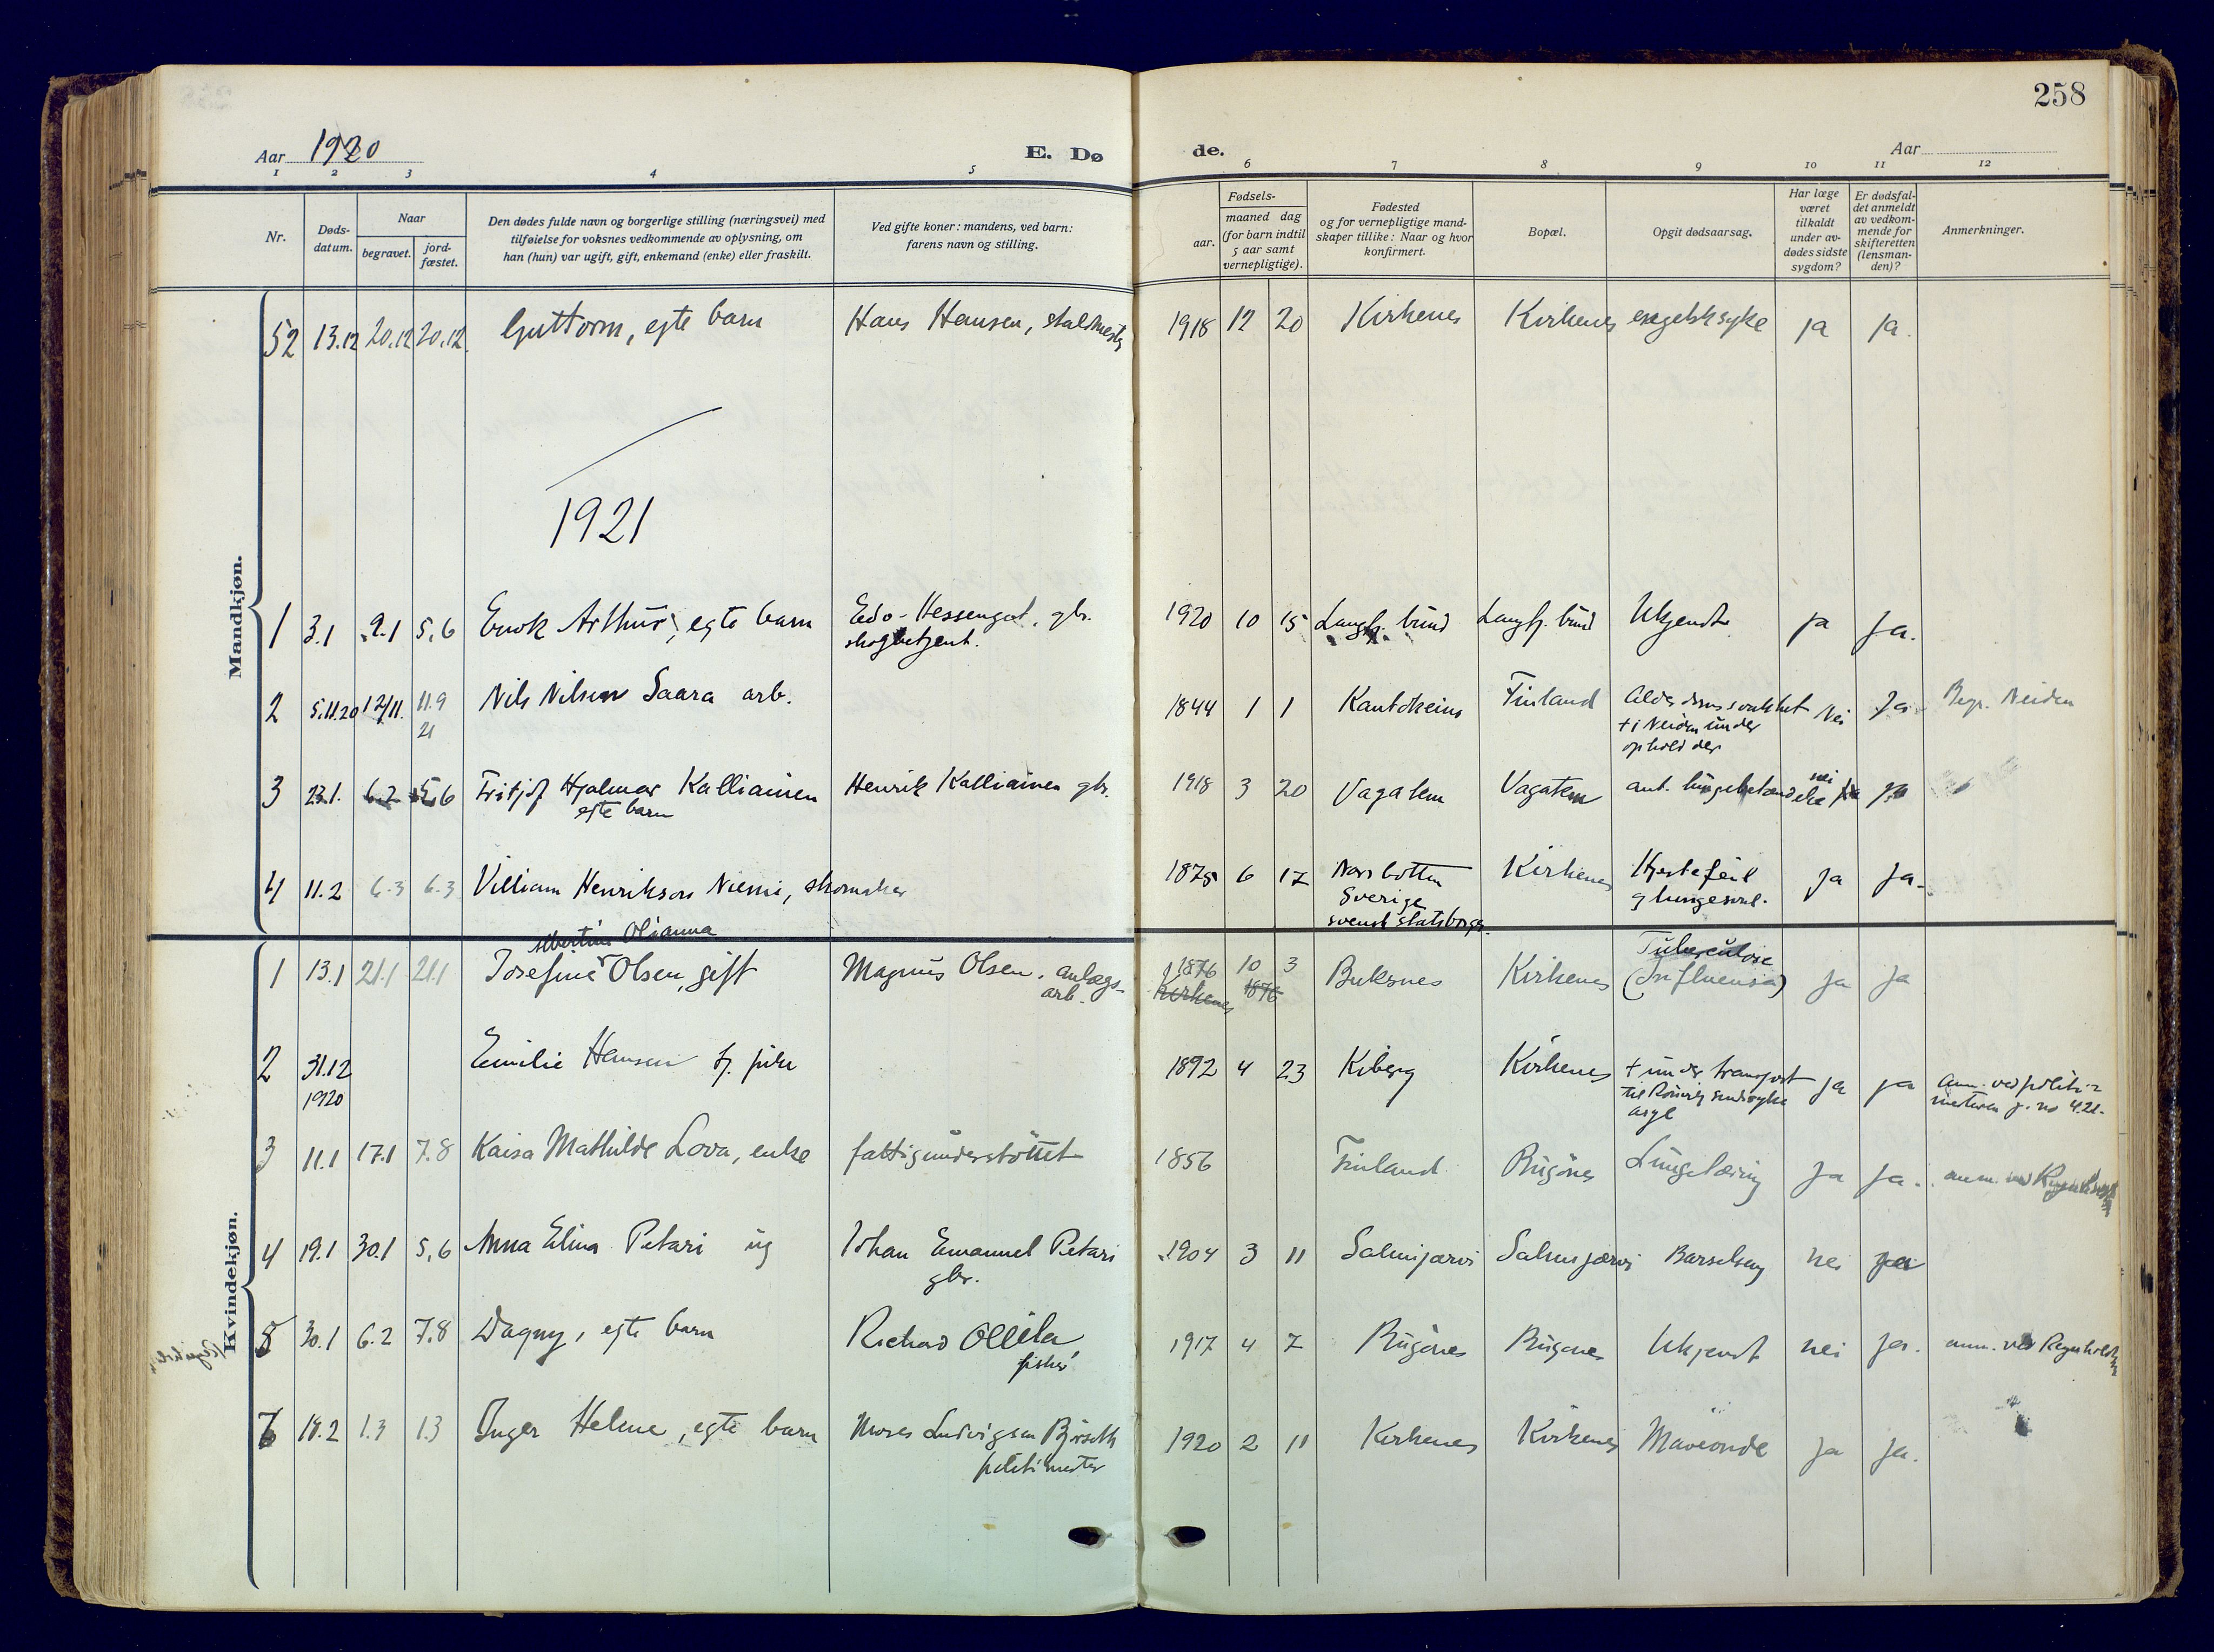 258
Aar 1920
E. Dø
de.
Aar
1 2 3 4 5 6 7 8 9 10 11 12
Nr.
Døds-
datum.
Naar
begravet.
jord-
fæstet.
Den dødes fulde navn og borgerlige stilling (næringsvei) med
tilføielse for voksnes vedkommende av oplysning, om
han (hun) var ugift, gift, enkemand (enke) eller fraskilt.
Ved gifte koner: mandens, ved barn:
farens navn og stilling.
Fødsels-
aar.
maaned dag
(for barn indtil
5 aar samt
vernepligtige).
Fødested
og for vernepligtige mand-
skaper tillike: Naar og hvor
konfirmert.
Bopæl.
Opgit dødsaarsag.
Har læge
været
tilkaldt
under av-
dødes sidste
sygdom?
Er dødsfal-
det anmeldt
av vedkom-
mende for
skifteretten
(lensman-
den)?
Anmerkninger.
Mandkjøn.
52 13.12 20.12 20.12. Guttorm, egte barn Hans Hansen, staldmester 1918 12 20 Kirkenes Kirkenes engelsk syke ja ja.
1921
1 3.1 9.1 5.6 Enok Arthur, egte barn Edo. Hessengut, gbr. 1920 10 15 Langfj. bund Langfj. bund Ukjendt ja ja.
skogbetjent.
2 5.11.20 12/11. 11.9 Nils Nilsen Saara arb. 1844 1 1 Kautokeino Finland Alderdomssvakhet Nei Ja Begr. Neiden
21
+ i Neiden under
ophold der
3 23.1. 6.2 5.6 Fritjof Hjalmar Kalliainen Henrik Kalliainen gbr. 1918 3 20 Vagatem Vagatem ant. lungebetændelse nei ja
egte barn
4 11.2 6.3 6.3 Villiam Henrikson Niemi, skomaker 1875 6 17 Norrbotten Kirkenes Hjertefeil ja ja.
Sverige
og lungesvul.
svensk statsborger.
Kvindekjøn.
Albertine Olianna
Tuberculose
1 13.1 21.1 21.1 Josefine Olsen, gift Magnus Olsen. anlægs- 1876 10 3 Buksnes Kirkenes (Influensa) ja ja
arb.
Kirkenes 1876
2 31.12 Emilie Hansen tj. pike 1892 4 23 Kiberg Kirkenes + under transport ja ja anm. ved politi-
1920
til Rönvig sindssyke
mesteren j. no 421.
asyl
3 11.1 17.1 7.8 Kaisa Mathilde Lova, enke fattigunderstöttet 1856 Finland Bugönes Lungetæring Ja Ja. anm. ved
4 19.1 30.1 5.6 Anna Elina Petari ug Johan Emanuel Petari 1904 3 11 Salmijarvi Salmijærvi Barselseng nei ja
gbr.
5 30.1 6.2 7.8 Dagny, egte barn Richard Ollila 1917 4 7 Bugönes Bugönes Ukjendt nei ja. anm. ved
fisker
6 18.2 1.3 1.3 Inger Helene, egte barn Mores Ludvigsen Björseth 1920 2 11 Kirkenes Kirkenes Maveonde ja ja.
politimester